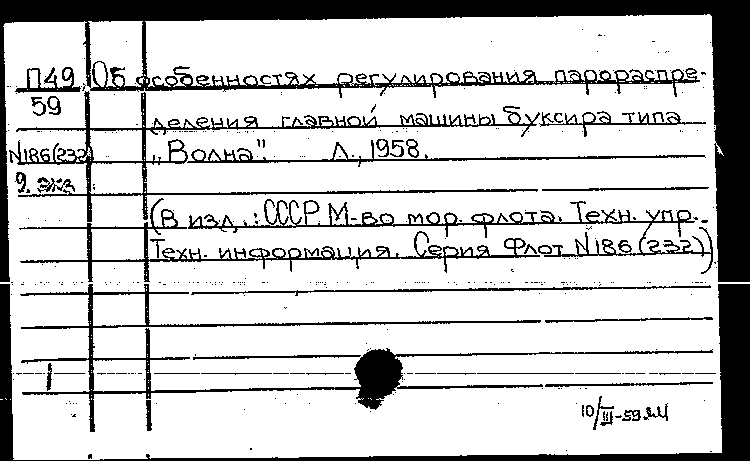 П49 Об особенностях регулирования парораспре-
59
деления главной машины буксира типа
N186(232) „Волна". Л., 1958.
9. экз
(В изд.: СССР. М-во мор. флота. Техн. упр.
Техн. информация. Серия Флот N186(232))
1
10/III-59